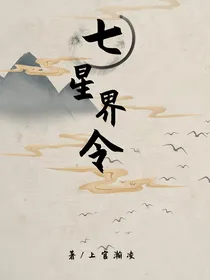 七星界令
著/上官瀚凌